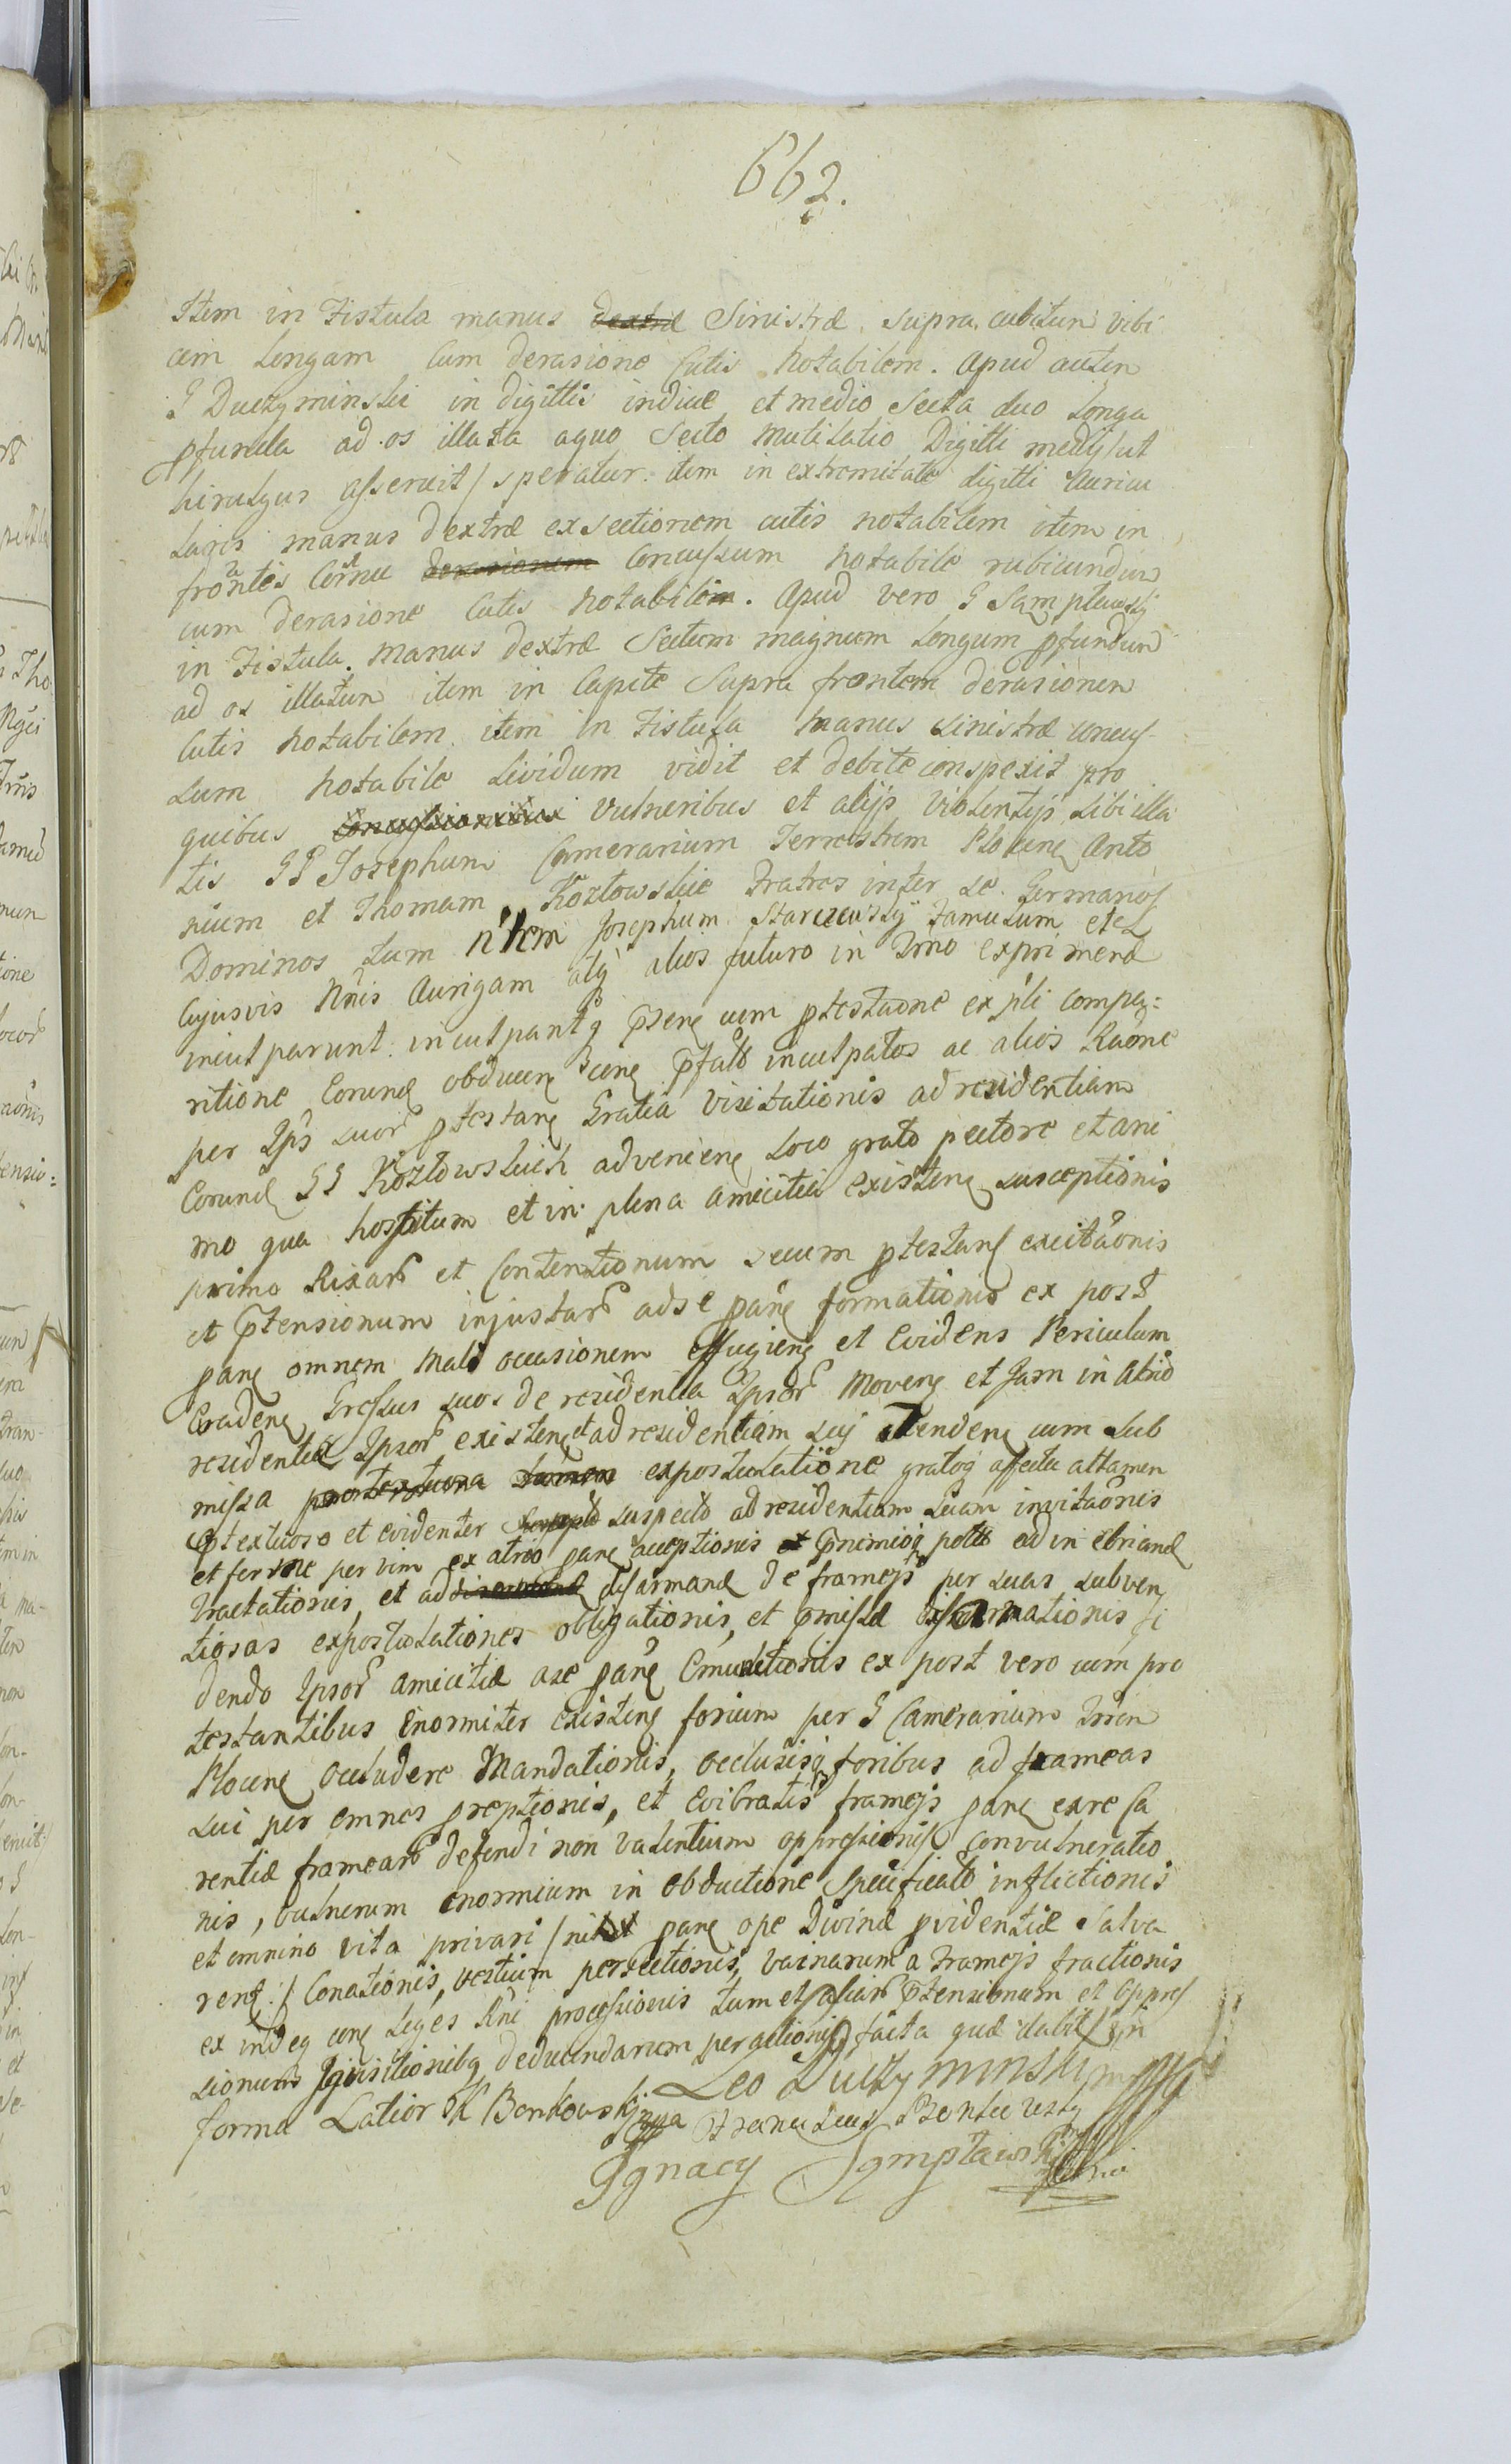 662.
Item in Fistula manus dextræ Sinistræ supra cubitum vibi
cem Longam Cum derasione Cutis notabilem. Apud autem
G Duczyminski in digittis indice et medio Secta duo Longa
pfunda ad os illata aquo Secto mutilatio Digitti medij/ut
hirulgus asseruit/speratur. item in extremitate digitti Auricu
Laris manus dextræ exsectionem cutis notabilem item in
frontis Cornu derasionem Concussum notabile rubicundum
cum derasione Cutis notabilem. Apud vero G Sampławsky
in Fistula manus dextræ Sectum magnum Longum pfundum
ad os illatum item in Capite Supra frontem derasionem
Cutis notabilem. item in Fistula manus sinistræ concus
sum notabile Lividum vidit et debite conspexit pro
quibus Vulneribus et alijs Violentijs sibi illa
tis GG Josephum Camerarium Terrestrem Plocen Anto
nium et Thomam Kozłowskie Fratres inter se Germanos
Dominos tum Josephum Starczewsky Famulum et
Cujusvis Nnis Aurigam atq alios futuro in Tmo exprimend
inculparunt. inculpantq psen cum ptestaone ex pti compa=
ritione Eorund obducen cong pfatos inculpatos ac alios Raone
per Ipos suor ptestan Gratia Visitationis ad residentiam
Eorund GG Kozłowskich advenien Loco grato pectore et ani
mo qua hospitum et in plena amicitia existen susceptionis
primo Rixar et Contentionum secum ptestan excitaonis
et ptensionum injustar adse pane formationis ex post
pane omnem mali occasionem effugien et Evidens Periculum
Evaden Gressus suos de residentia Ipsor Moven et Jam in Atrio
residentiæ Ipsor existen et ad residentiam suj tenden cum sub
missa expostulatione gratoq affectu attamen
ptextuoso et evidenter suspecto ad residentiam suam invitaonis
et ferme per vim ex atrio pane acceptionis et pnimioq potu ad in ebriand
tractationis, et ad disarmand de framejs per suas subven
tiosas expostulationes obligationis, et pmissæ Exarmationis fi
dendo Ipsor amicitiæ ase pane Emunitionis ex post vero cum pro
testantibus Enormiter existen forium per G Camerarium Trren
Plocen Occludere Mandationis, occlusisq foribus ad frameas
sui per omnes preptionis, et Evibratis framejs pane exre Ca
rentiæ framear defendi non valentium oppressionis Convulneratio
nis, vulnerum enormium in obductione specificator inflictionis
et omnino vita privari /nisi pane ope Divinæ pvidentiæ Salva
rent./ Conationis, vestium persectionis, vainarum a Framejs fractionis
ex indeq cong Leges Rni processionis tum et aliar ptensionum et oppres
sionum Jqvisitionibq deducendarum peractionis facta quæ dabit in
forma Latior K Bonkowsky mppa Leo Duczyminski mppa
Franciscus Bonkowsky
Jgnacy Sampławski mppria